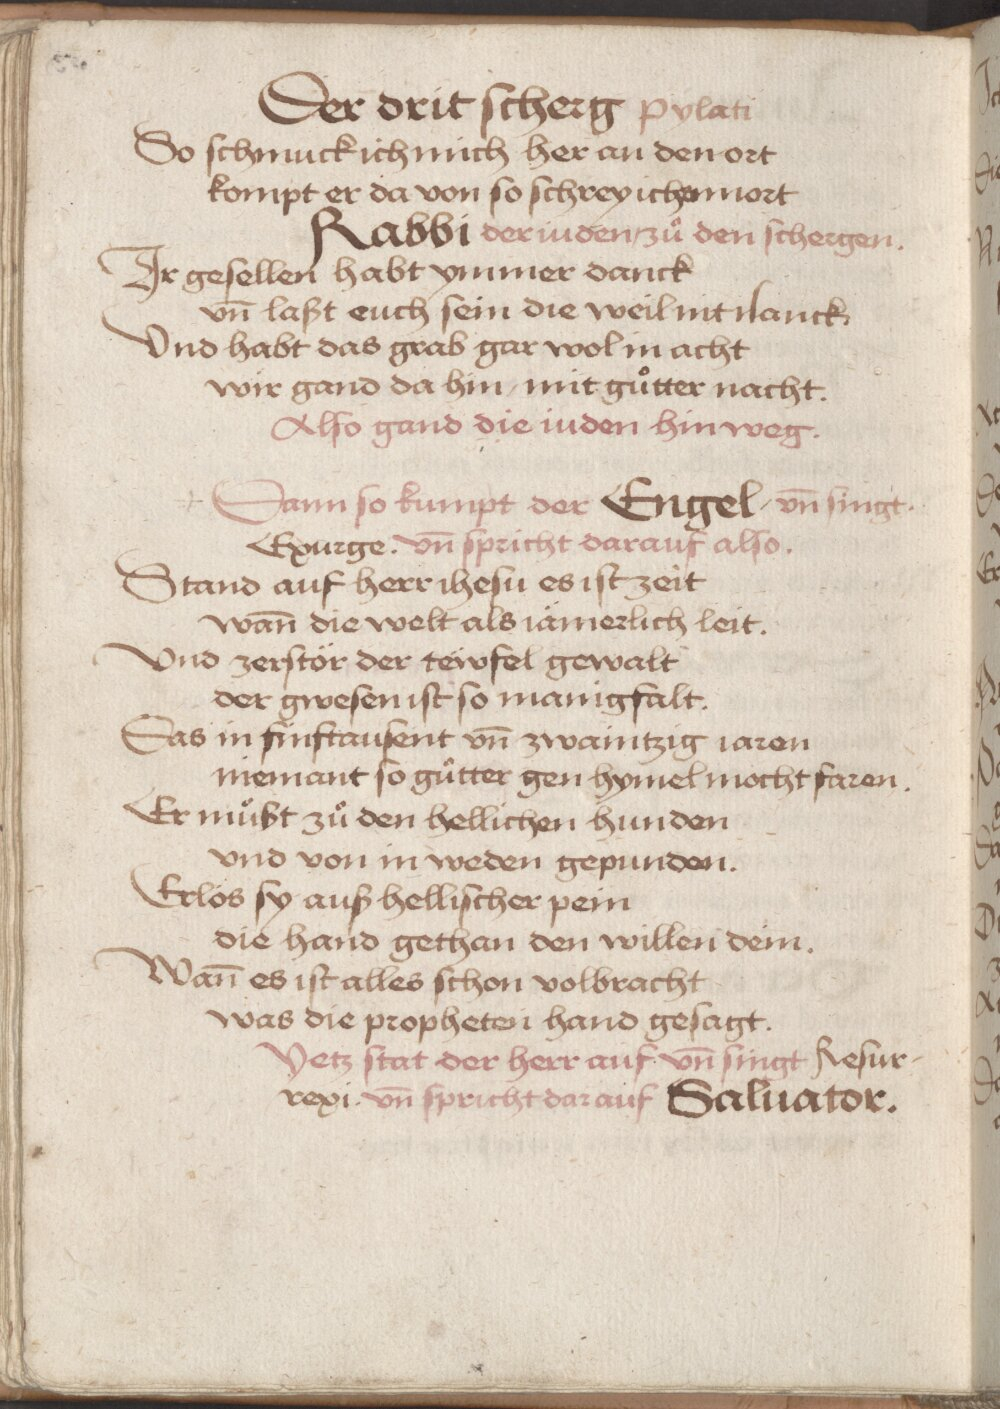 Der drit scherg pylati
So schmuck ich mich her an den ort
kompt er da von so schrey ich mort
Rabbi der iuden zuͦ den schergen.
Ir gesellen habt ymmer danck
vn̄ laßt euch sein die weil nit lanck
Vnd habt das grab gar wol in acht
wir gand da hin / mit guͦtter nacht.
Also gand die iuden hin weg.
Dann so kumpt der Engel / vn̄ singt.
Exurge. vn̄ spricht darauf also.
Stand auf herr ihesu es ist zeit
wan̄ die welt als iämerlich leit.
Vnd zerstör der tewfel gewalt
der gwesen ist so manigfalt.
Das in finftausent vn̄ zwaintzig iaren
niemant so guͦtter gen hymel mocht faren.
Er muͦßt zuͦ den hellichen hunden
vnd von in weden gepunden.
Erlös sy auß hellischer pein
die hand gethan den willen dein.
Wan̄ es ist alles schon volbracht
was die propheten hand gesagt.
Yetz stat der herr auf vn̄ singt Resur-
rexi. vn̄ spricht darauf Saluator.